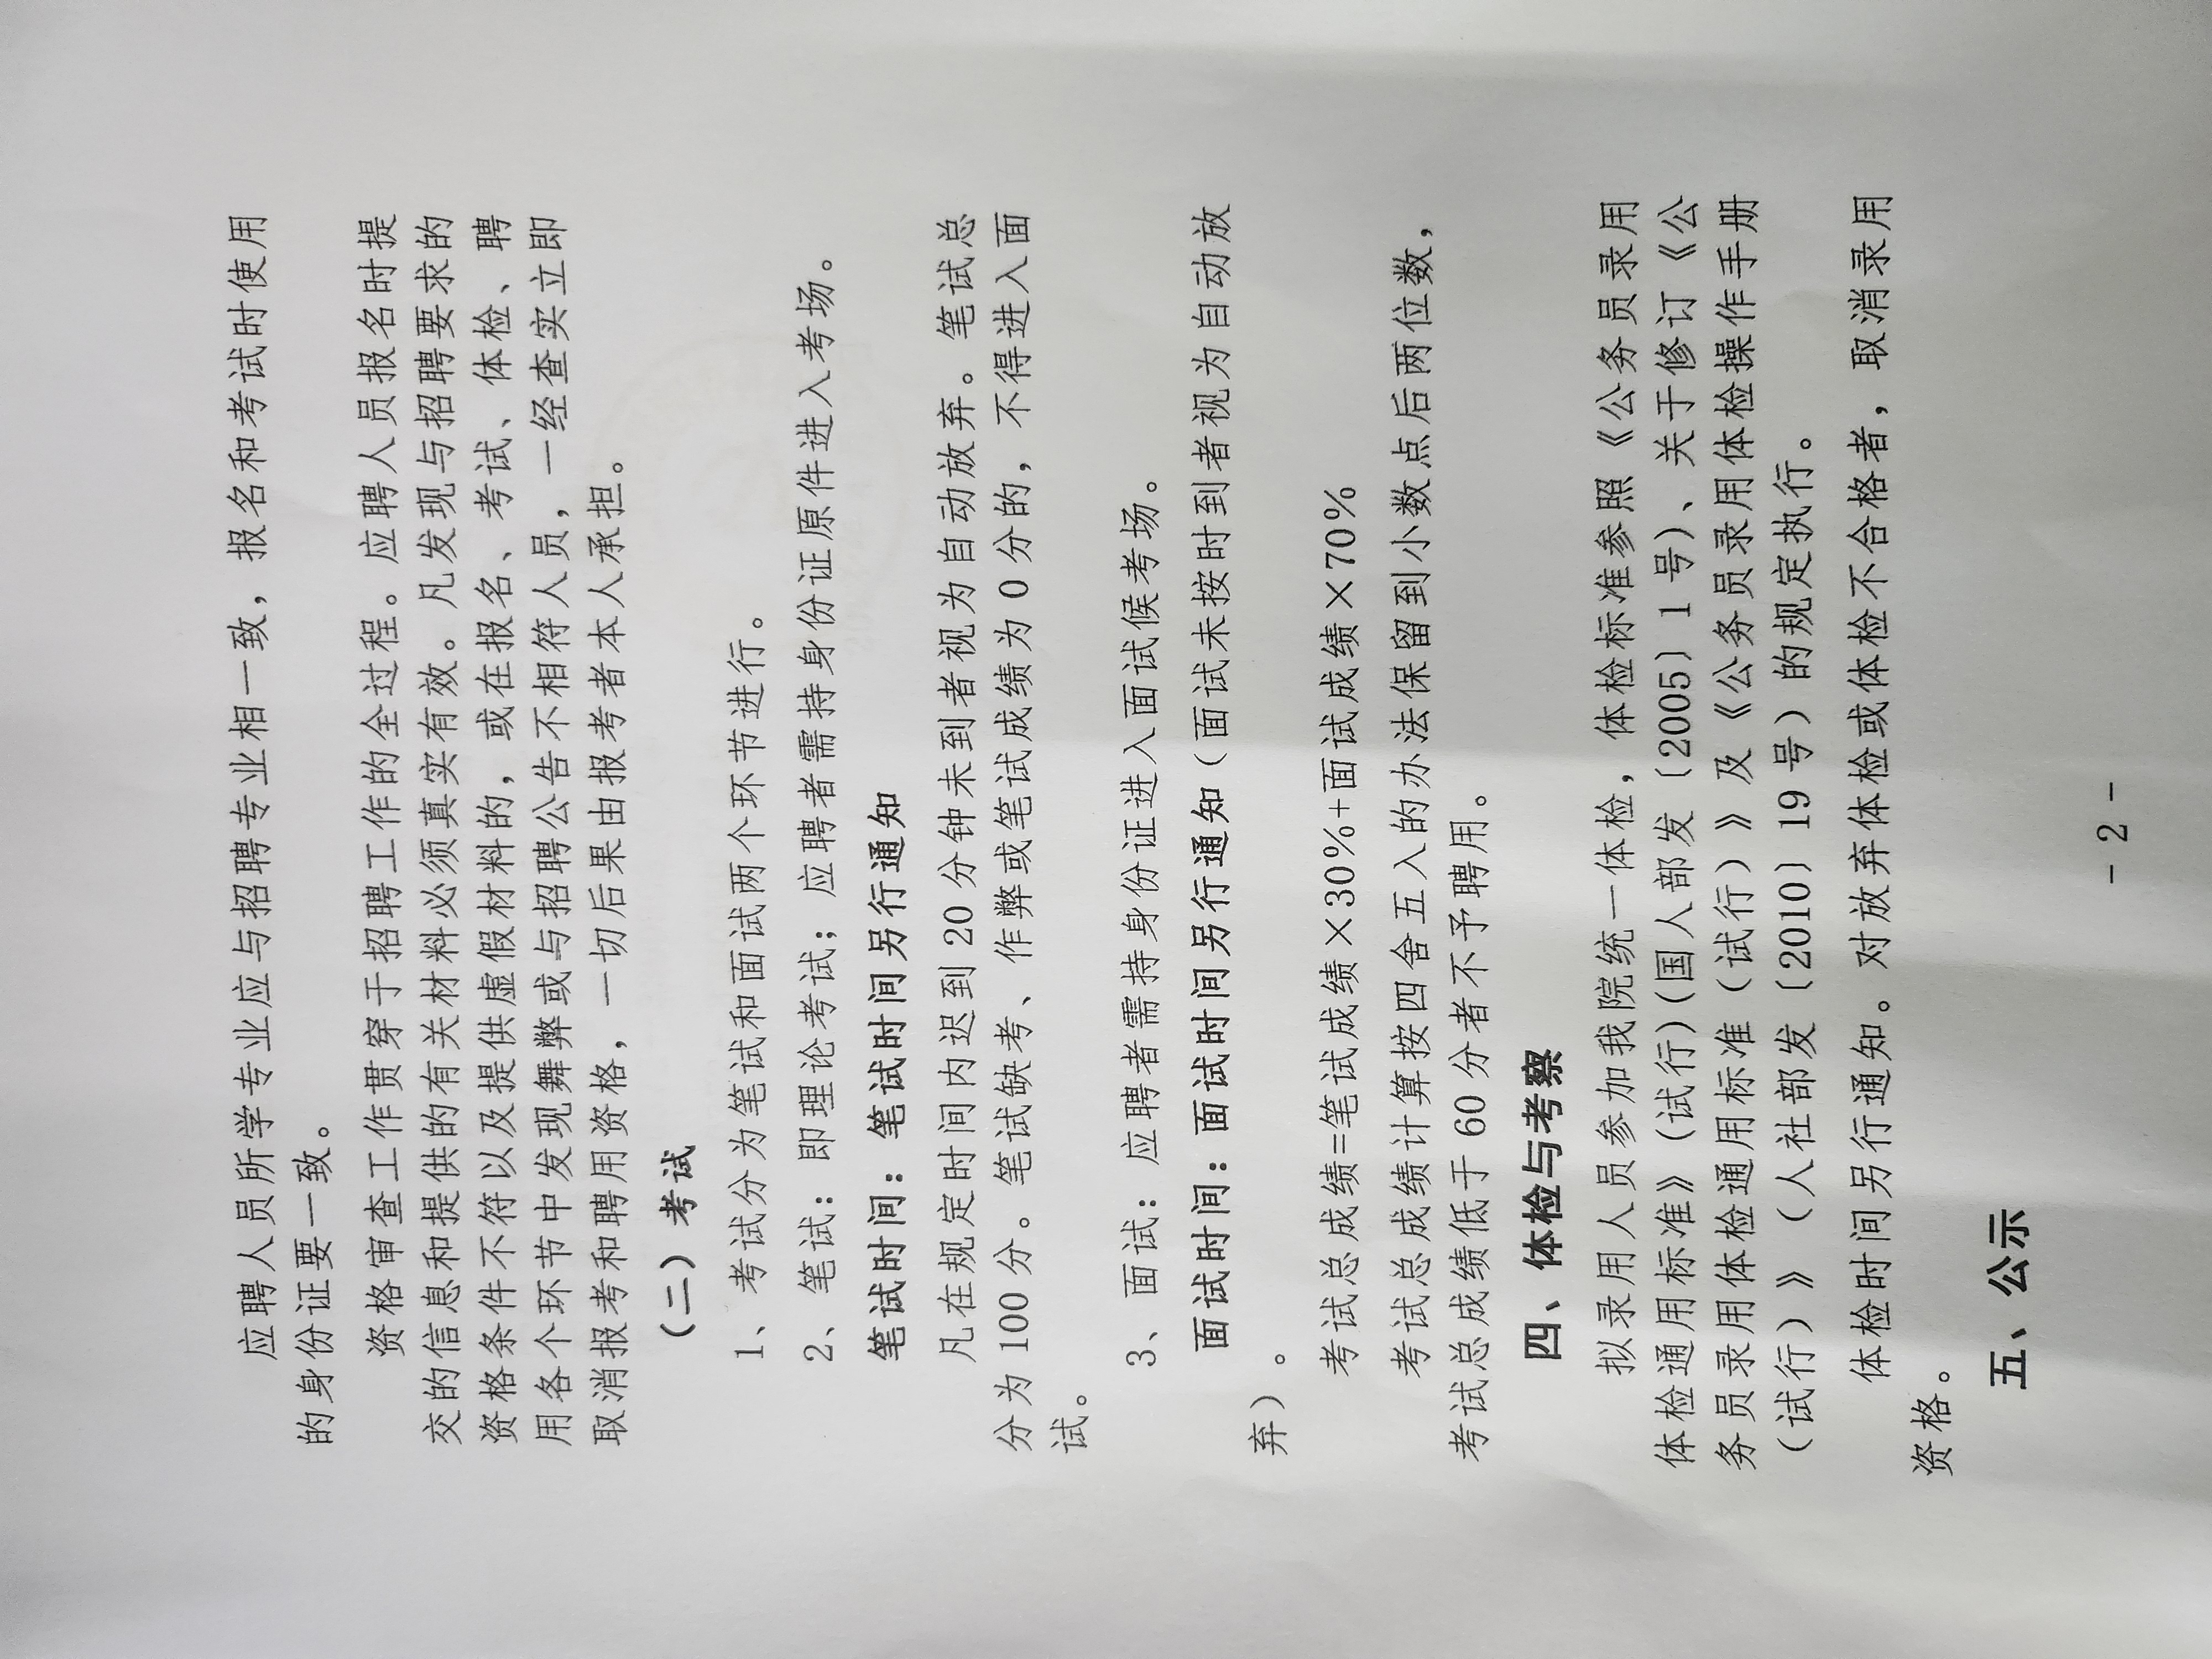 应聘人员所学专业应与招聘专业相一致，报名和考试时使用
的身份证要一致。
资格审查工作贯穿于招聘工作的全过程。应聘人员报名时提
交的信息和提供的有关材料必须真实有效。凡发现与招聘要求的
资格条件不符以及提供虚假材料的，或在报名、考试、体检、聘
用各个环节中发现舞弊或与招聘公告不相符人员，一经查实立即
取消报考和聘用资格，一切后果由报考者本人承担。
（二）考试
1、考试分为笔试和面试两个环节进行。
2、笔试：即理论考试；应聘者需持身份证原件进入考场。
笔试时间：笔试时间另行通知
凡在规定时间内迟到 20 分钟未到者视为自动放弃。笔试总
分为 100 分。笔试缺考、作弊或笔试成绩为 0 分的，不得进入面
试。
3、面试：应聘者需持身份证进入面试候考场。
面试时间：面试时间另行通知（面试未按时到者视为自动放
弃）。
考试总成绩=笔试成绩×30%+面试成绩×70%
考试总成绩计算按四舍五入的办法保留到小数点后两位数，
考试总成绩低于 60 分者不予聘用。
四、体检与考察
拟录用人员参加我院统一体检，体检标准参照《公务员录用
体检通用标准》（试行）（国人部发〔2005〕1 号）、关于修订《公
务员录用体检通用标准（试行）》及《公务员录用体检操作手册
（试行）》（人社部发〔2010〕19 号）的规定执行。
体检时间另行通知。对放弃体检或体检不合格者，取消录用
资格。
五、公示
- 2 -